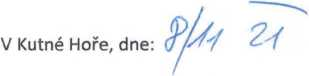 V Kutné Hoře, dne: 8/11 21